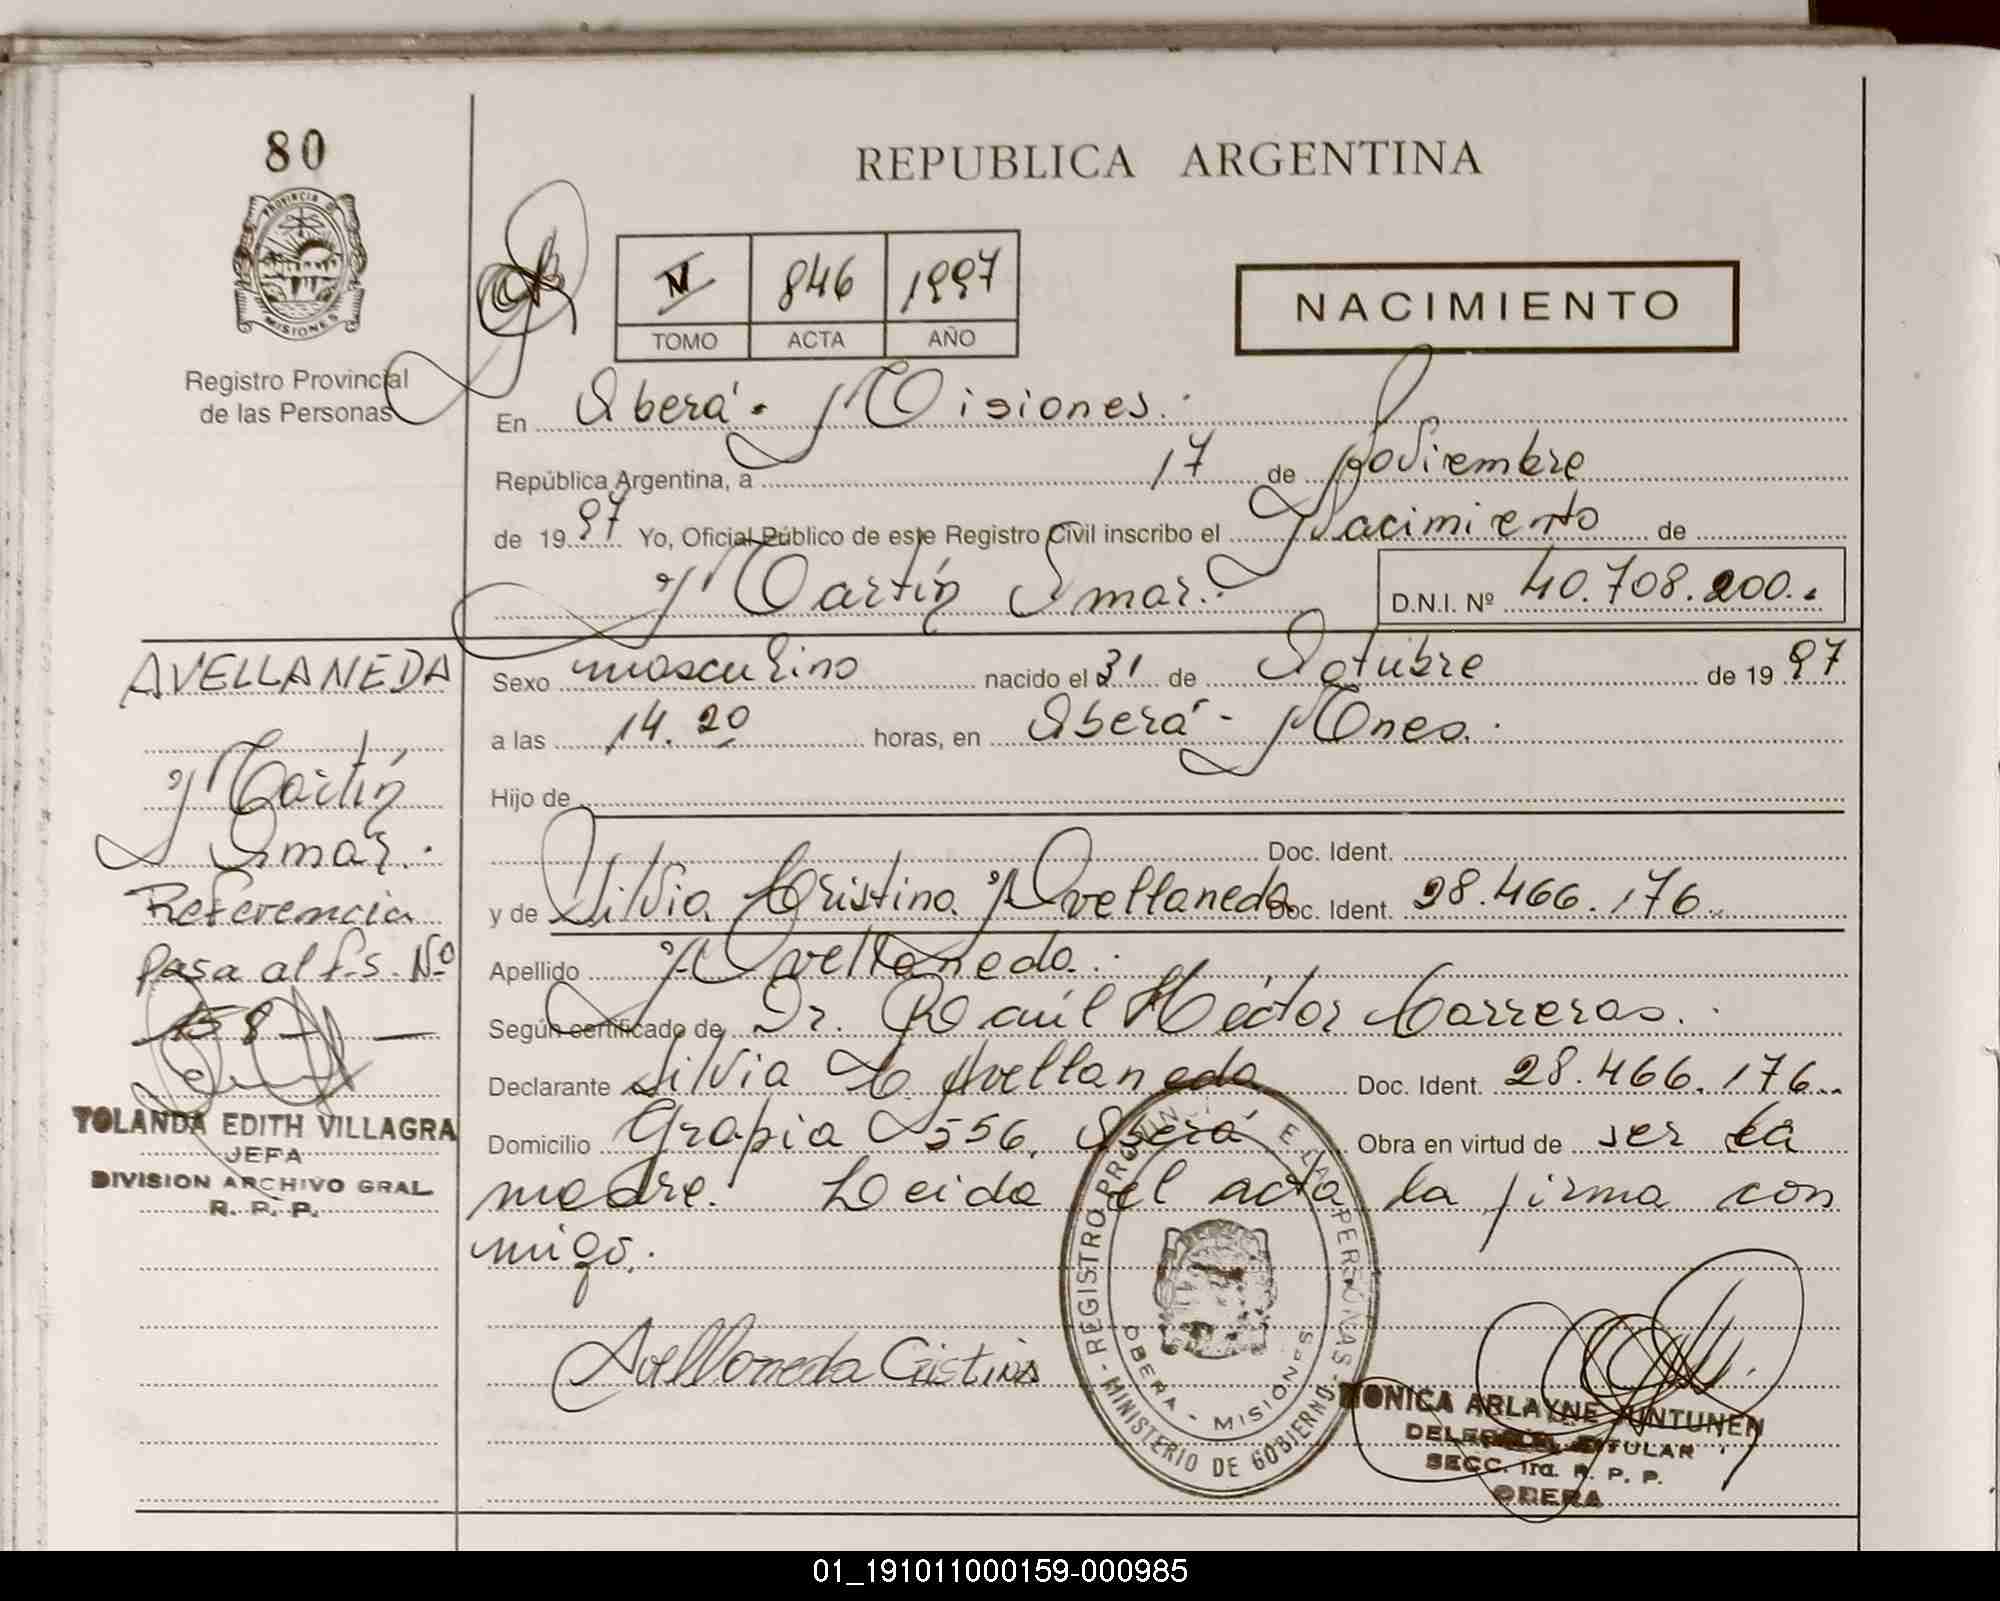 80
PROVINCIA D
MISIONES
Registro Provincial
de las Personas
REPUBLICA ARGENTINA
IV 846 1997
TOMO ACTA AÑO
NACIMIENTO
En Oberá - Misiones.
República Argentina, a 17 de Noviembre
de 1997 Yo, Oficial Público de este Registro Civil inscribo el Nacimiento de
Martín Omar. D.N.I. Nº 40.708.200.
Sexo masculino nacido el 31 de Octubre de 1997
a las 14.20 horas, en Oberá - Mnes.
Hijo de
Doc. Ident.
y de Silvia Cristina Avellaneda Doc. Ident. 28.466.176
Apellido Avellaneda.
Según certificado de Dr. Raúl Héctor Carreras.
Declarante Silvia C. Avellaneda Doc. Ident. 28.466.176
Domicilio Grapia 556, Oberá Obra en virtud de ser la
madre. Leida el acta la firma con
migo.
Avellaneda Cristina
REGISTRO PROVIN E LAS PERSONAS
OBERA - MISIONES
- MINISTERIO DE GOBIERNO -
MONICA ARLAYNE JUNTUNEN
DELEGADA TITULAR
SECC. 1ra. R. P. P.
OBERA
AVELLANEDA
Martín
Omar.
Referencia
Pasa al Fs. Nº
158
YOLANDA EDITH VILLAGRA
JEFA
DIVISION ARCHIVO GRAL
R. P. P.
01_191011000159-000985